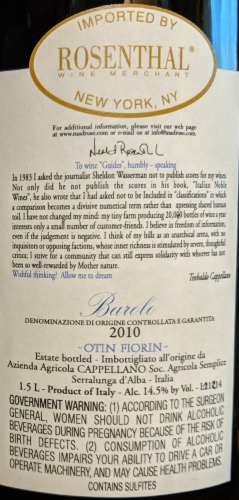 IMPORTED BY
ROSENTHAL®
WINE MERCHANT
NEW YORK, NY
For additional information, please visit our web page
at www.madrose.com or e-mail us at info@madrose.com
To wine "Guides", humbly - speaking
In 1983 I asked the journalist Sheldon Wasserman not to publish scores for my wines.
Not only did he not publish the scores in his book, "Italian Noble
Wines", he also wrote that I had asked not to be Included in "classifications" in which
a comparison becomes a divisive numerical term rather than upressing shared human
toil. I have not changed my mind: my tiny farm producing 20,000 bottles of wine a year
interests only a small number of customer-friends. I believe in freedom of information,
even if the judgement is negative. I think of my hills as an anarchical arena, with no
inquisitors or opposing factions, whose inner richness is stimulated by severe, thoughtful
critics; I strive for a community that can still express solidarity with whoever has not
been so well-rewarded by Mother nature.
Wishful thinking? Allow me to dream
Teobaldo Cappellano
Barolo
DENOMINAZIONE DI ORIGINE CONTROLLATA E GARANTITA
2010
-OTIN FIORIN-
Estate bottled - Imbottigliato all'origine da
Azienda Agricola CAPPELLANO Soc. Agricola Semplice
Serralunga d'Alba - Italia
1.5 L - Product of Italy - Alc. 14.5% by Vol. -
GOVERNMENT WARNING: (1) ACCORDING TO THE SURGEON
GENERAL, WOMEN SHOULD NOT DRINK ALCOHOLIC
BEVERAGES DURING PREGNANCY BECAUSE OF THE RISK OF
BIRTH DEFECTS. (2) CONSUMPTION OF ALCOHOLIC
BEVERAGES IMPAIRS YOUR ABILITY TO DRIVE A CAR OR
OPERATE MACHINERY, AND MAY CAUSE HEALTH PROBLEMS.
CONTAINS SULFITES